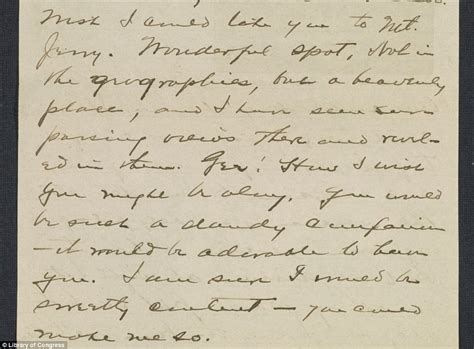 Wish I could take you to Mt.
Jerry. Wonderful spot, Not in
the geographies, but a heavenly
place, and I have seen sur
passing views there and revel-
ed in them. Gee! How I wish
you might be along. You would
be such a dandy companion
- it would be adorable to have
you. I am sure I would be
sweetly content - you could
make me so.
© Library of Congress